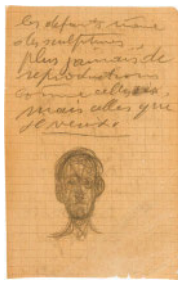 les défauts même
des sculptures
plus jamais de
reproductions
comme celles-ci,
mais celles que
je veux.